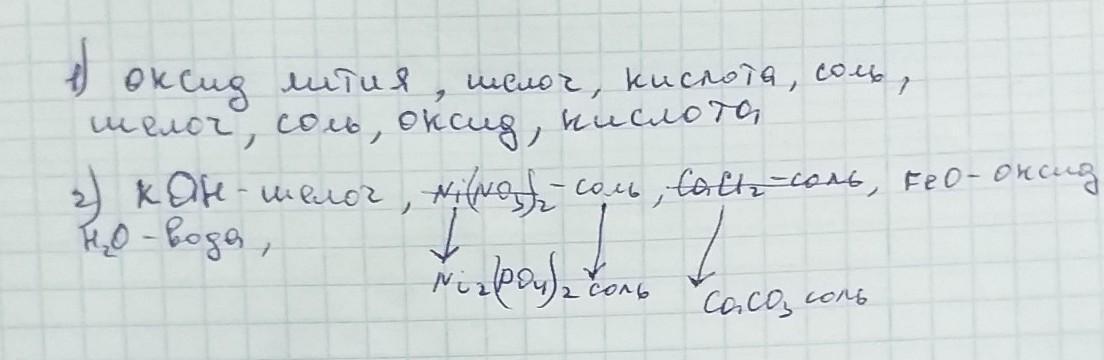 1) оксид лития, щелоч, кислота, соль,
щелоч, соль, оксид, кислота
2) KOH-щелоч, Ni(NO3)2-соль, CaCl2-соль, FeO-оксид
H2O-вода,
Ni2(PO4)2 соль CaCO3 соль